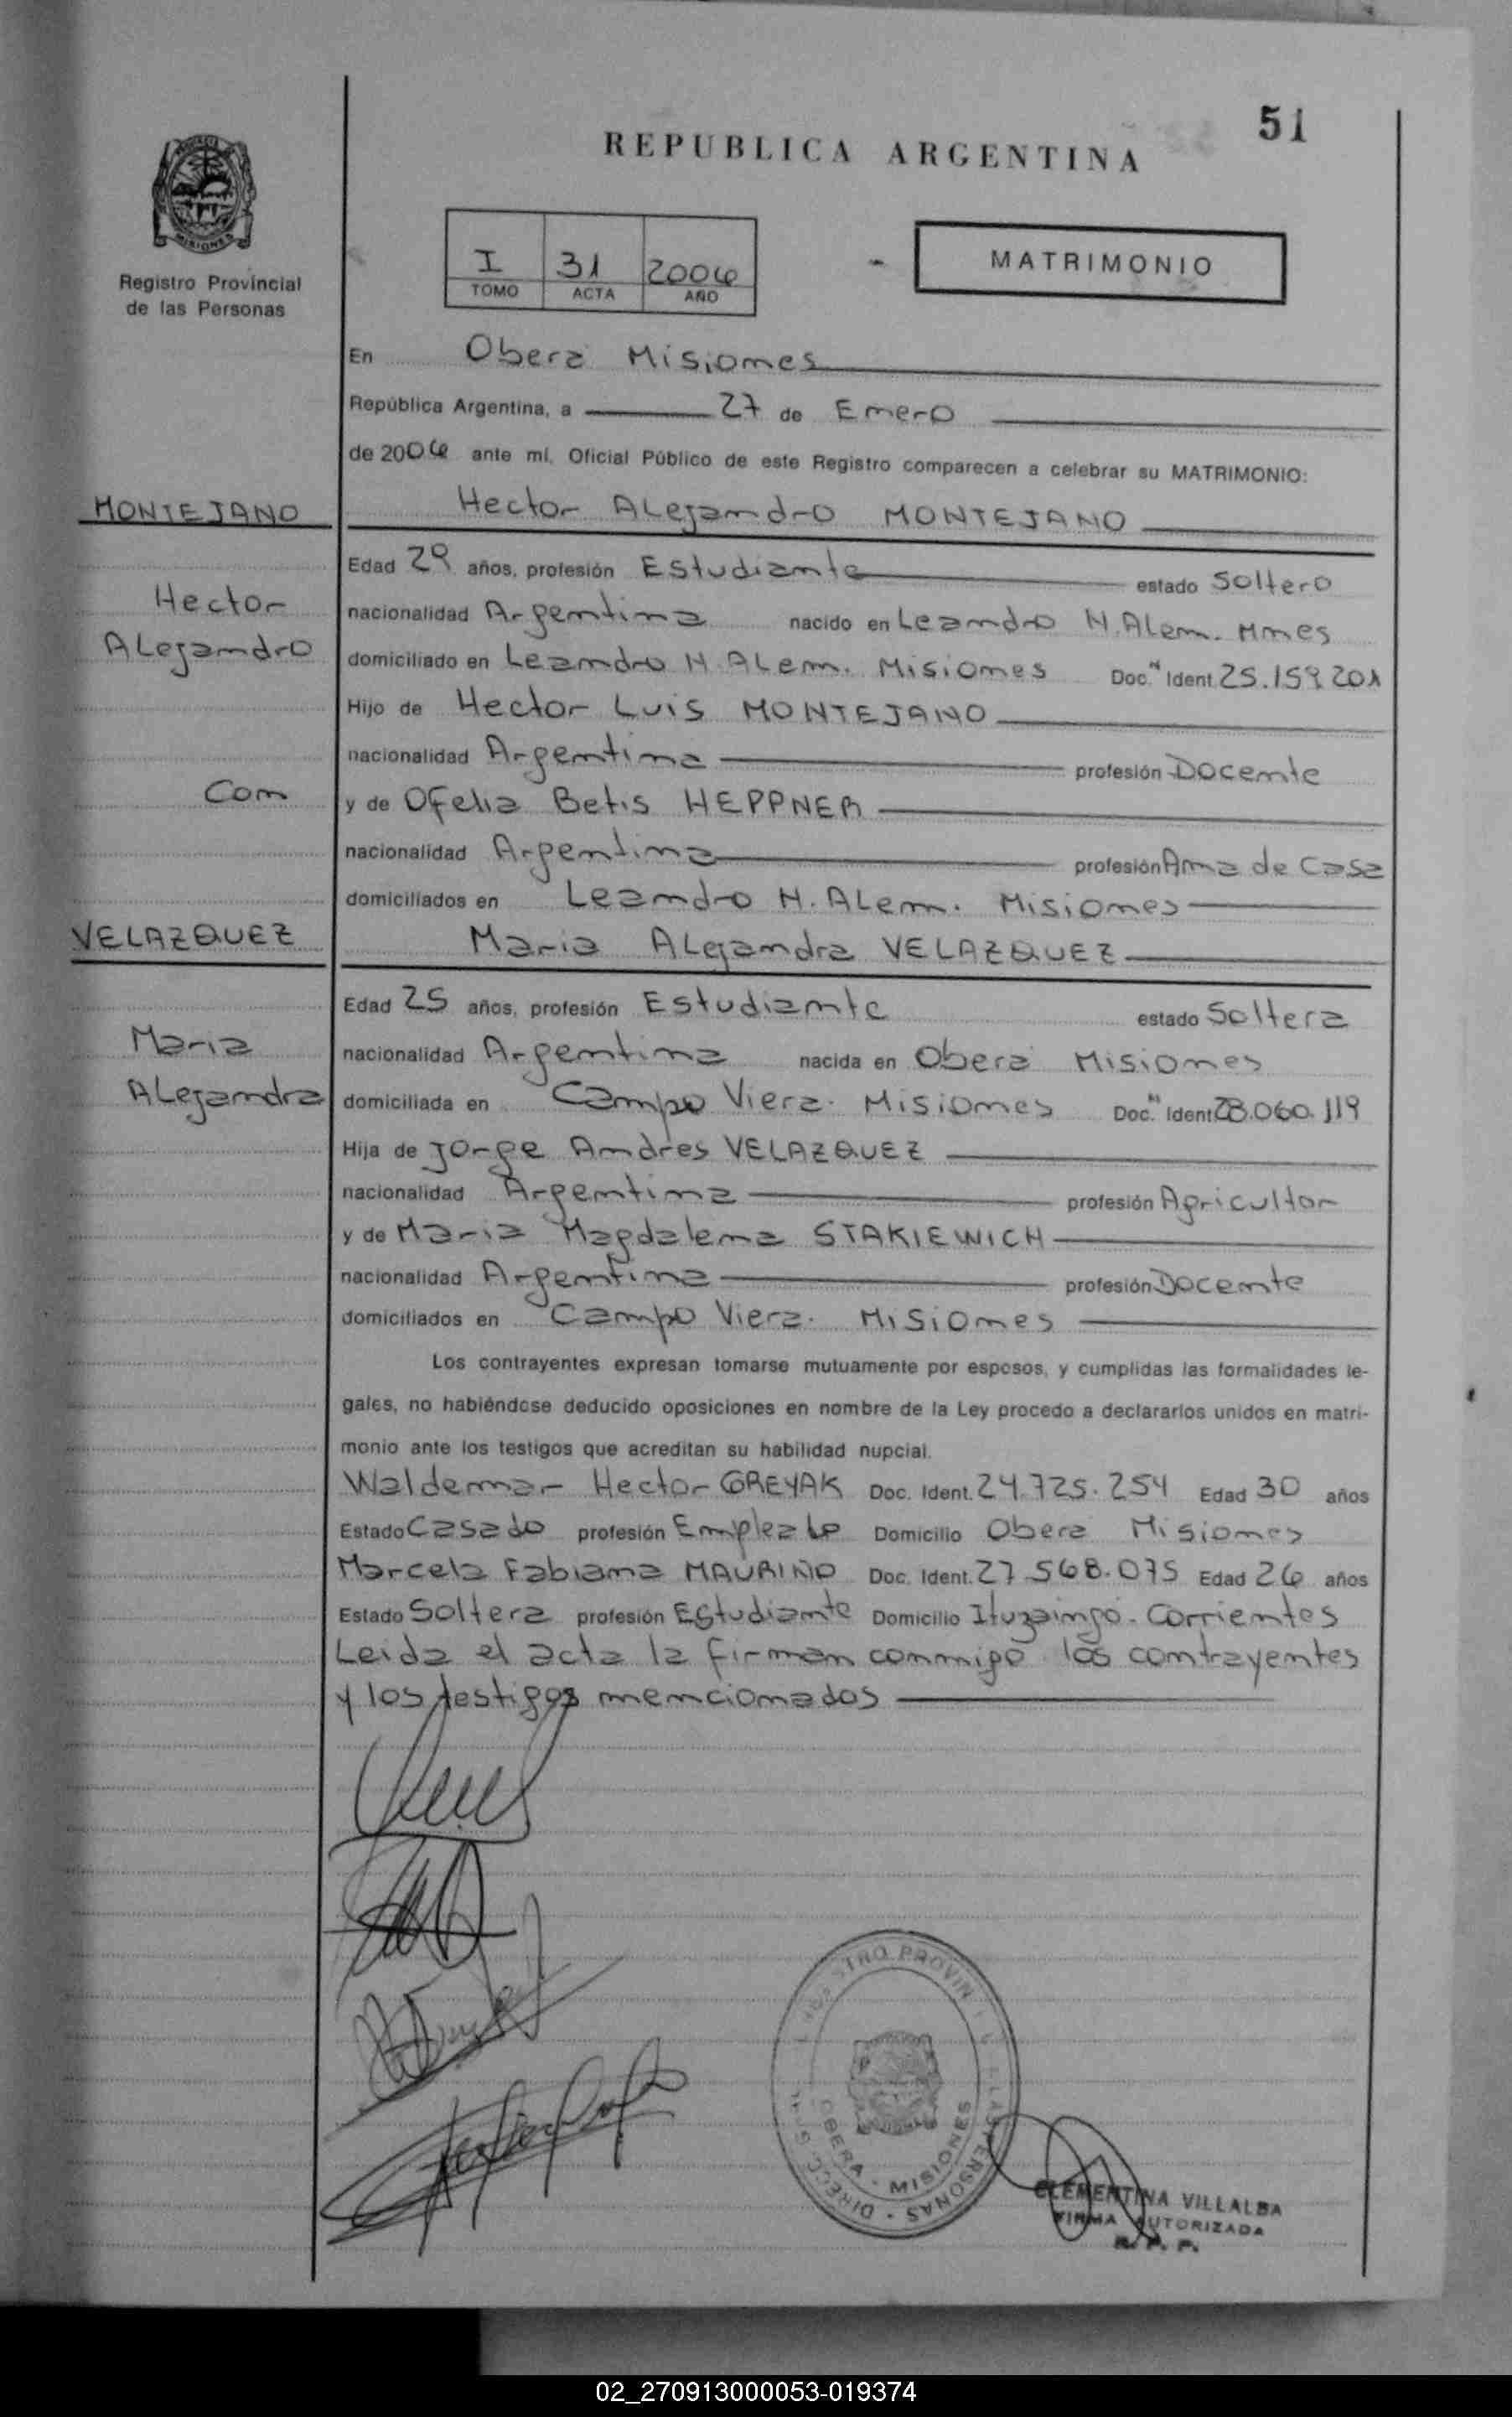 51
REPUBLICA ARGENTINA
MISIONES
Registro Provincial
de las Personas
I 31 2006
TOMO ACTA AÑO
MATRIMONIO
En Obera Misiones
República Argentina, a 27 de Enero
de 2006 ante mí, Oficial Público de este Registro comparecen a celebrar su MATRIMONIO:
MONTEJANO
Hector Alejandro MONTEJANO
Edad 29 años, profesión Estudiante estado Soltero
Hector
nacionalidad Argentina nacido en Leandro N. Alem. Mnes
Alejandro
domiciliado en Leandro N. Alem. Misiones Doc. N Ident. 25.159.201
Hijo de Hector Luis MONTEJANO
nacionalidad Argentina profesión Docente
Con
y de Ofelia Betis HEPPNER
nacionalidad Argentina profesión Ama de Casa
domiciliados en Leandro N. Alem. Misiones
VELAZQUEZ
Maria Alejandra VELAZQUEZ
Edad 25 años, profesión Estudiante estado Soltera
Maria
nacionalidad Argentina nacida en Obera Misiones
Alejandra
domiciliada en Campo Viera. Misiones Doc. N Ident. 28.060.119
Hija de Jorge Andres VELAZQUEZ
nacionalidad Argentina profesión Agricultor
y de Maria Magdalena STAKIEWICH
nacionalidad Argentina profesión Docente
domiciliados en Campo Viera. Misiones
Los contrayentes expresan tomarse mutuamente por esposos, y cumplidas las formalidades le-
gales, no habiéndose deducido oposiciones en nombre de la Ley procedo a declararlos unidos en matri-
monio ante los testigos que acreditan su habilidad nupcial.
Waldemar Hector GREYAK Doc. Ident. 24.725.254 Edad 30 años
Estado Casado profesión Empleado Domicilio Obera Misiones
Marcela Fabiana MAURIÑO Doc. Ident. 27.568.075 Edad 26 años
Estado Soltera profesión Estudiante Domicilio Ituzaingo. Corrientes
Leida el acta la firman conmigo los contrayentes
y los testigos mencionados
OBERA - MISIONES
CLEMENTINA VILLALBA
FIRMA AUTORIZADA
R. P. P.
02_270913000053-019374